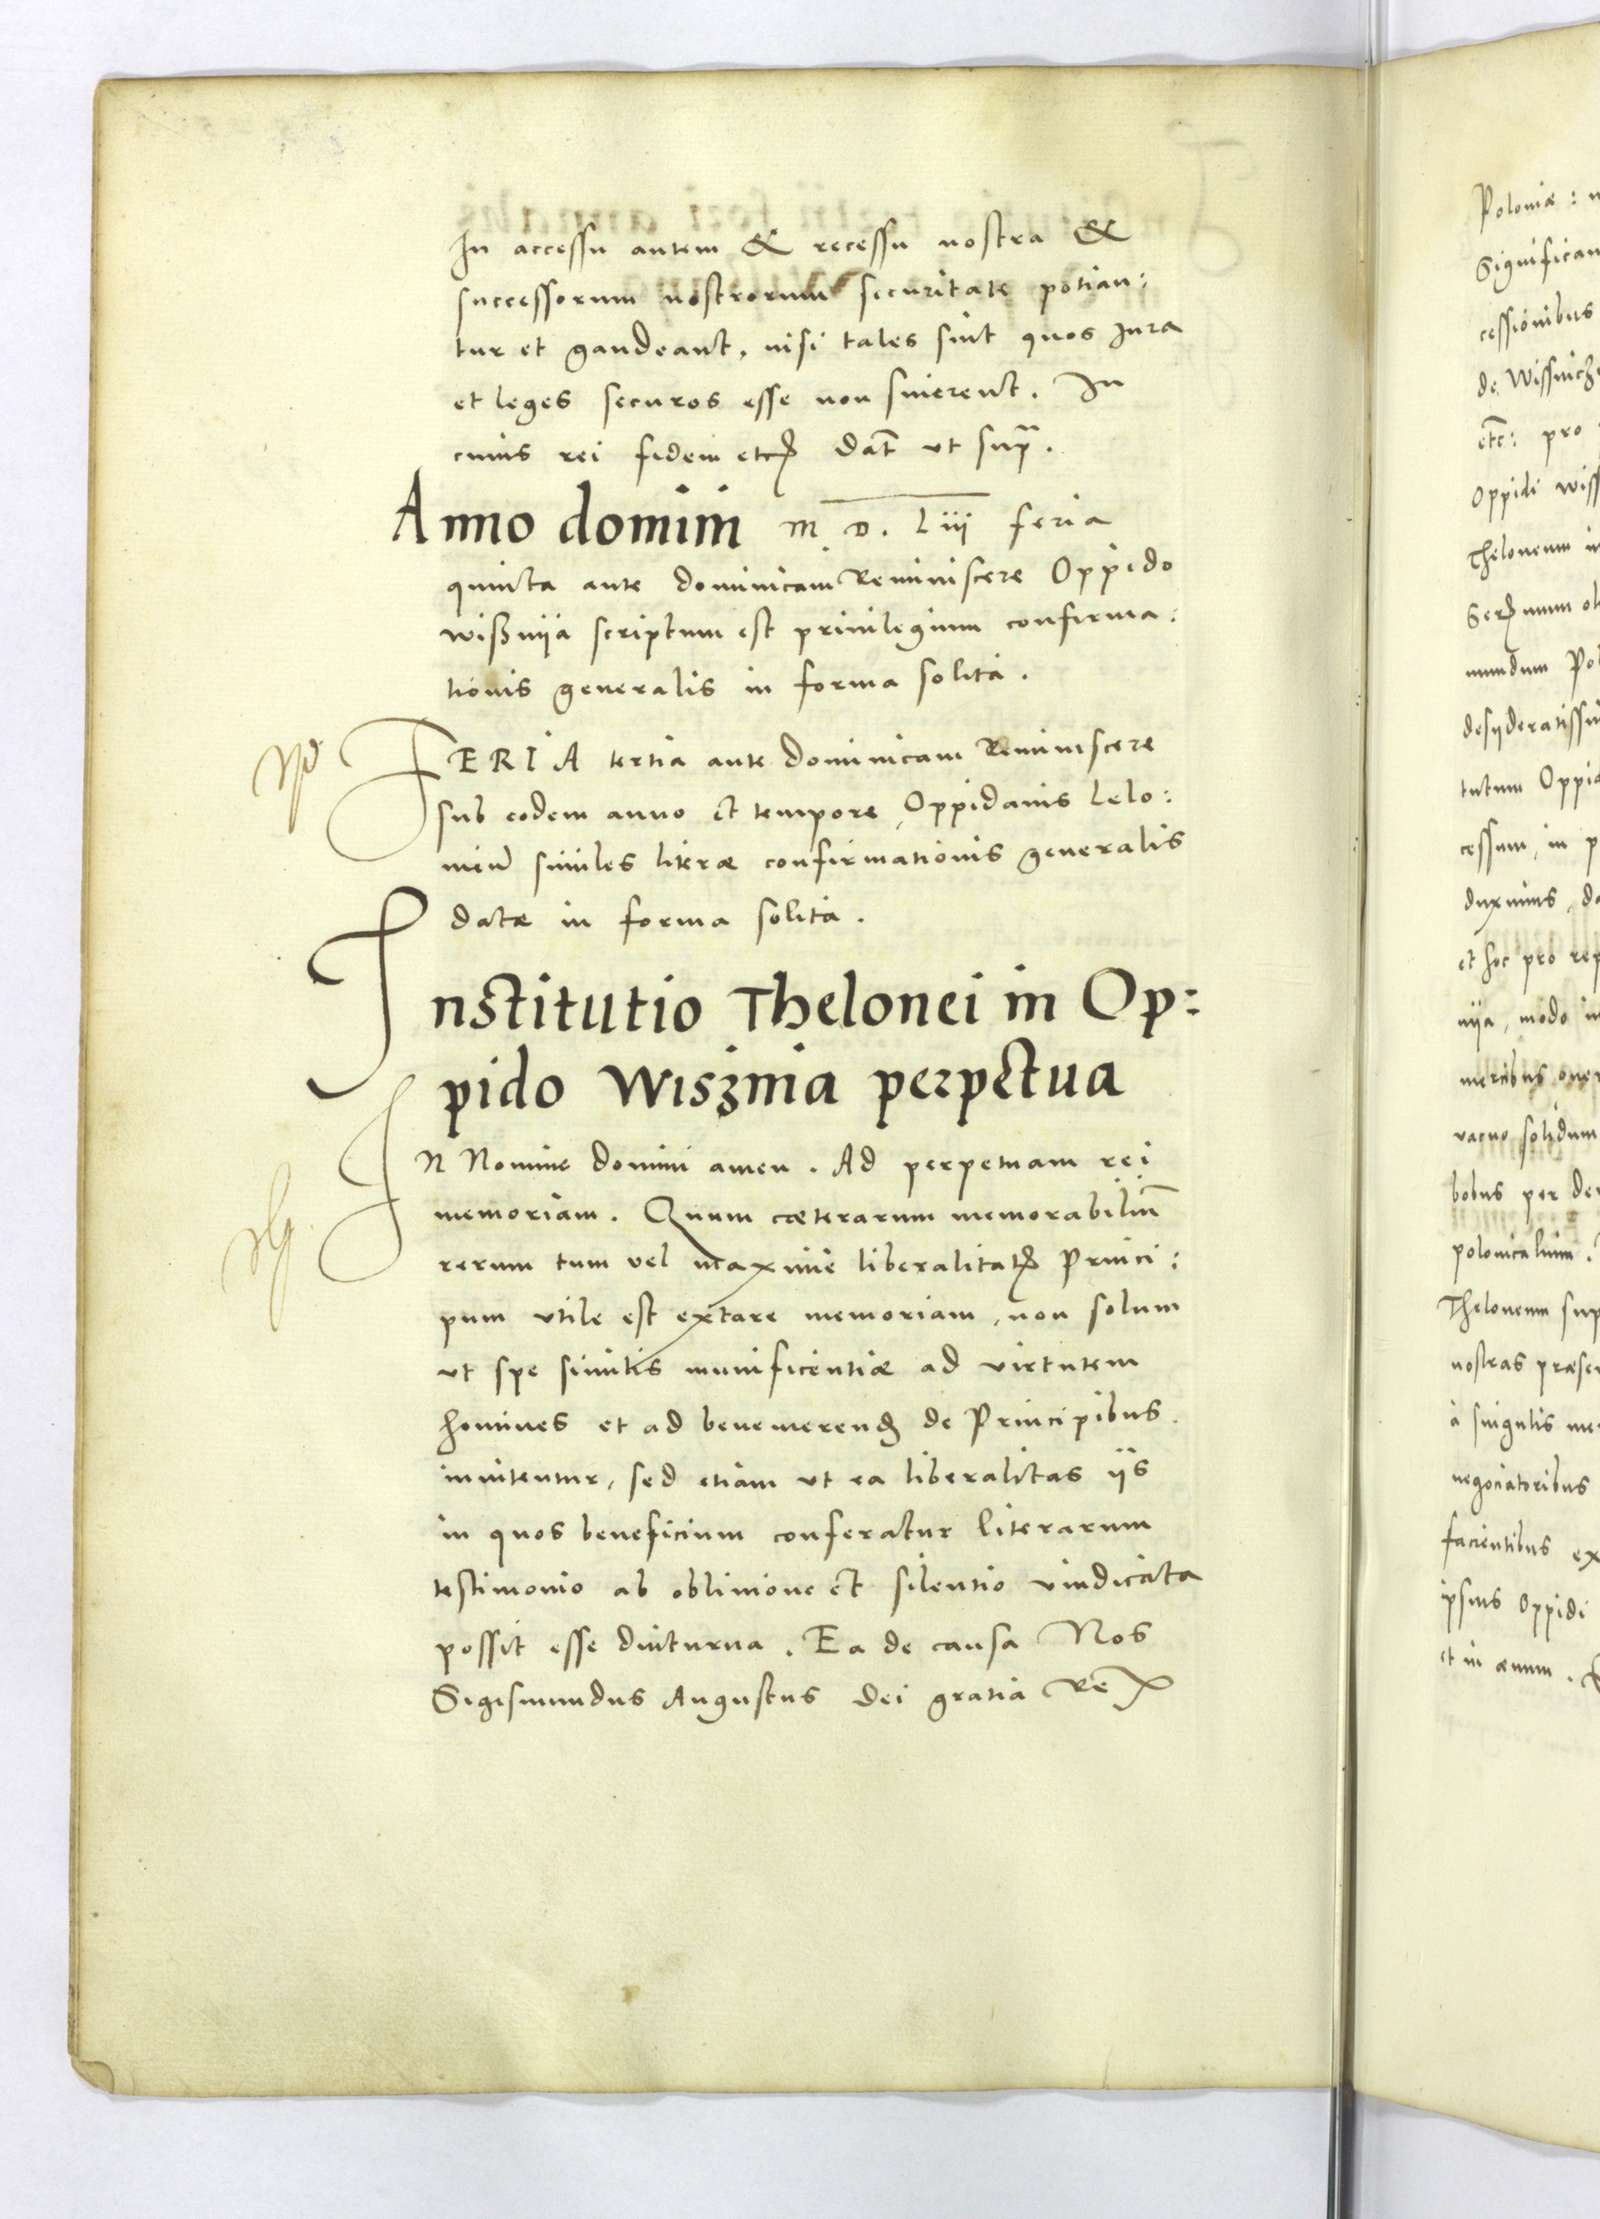 In accessu autem & recessu nostra &
successorum nostrorum securitate potian:
tur et gaudeant, nisi tales sint quos Jura
et leges securos esse non sinerent. In
cuius rei fidem etc. Dat ut supra.
Anno domini M. D. Liij feria
quinta ante dominicam Reminiscere Oppido
wißnija scriptum est priuilegium confirma:
tionis generalis in forma solita.
FERIA tertia ante Dominicam Reminiscere
sub eodem anno et tempore, Oppidanis Lelo:
mien similes literæ confirmationis generalis
datæ in forma solita.
Institutio Thelonei in Op:
pido Wisznia perpetua
IN Nomine Domini amen. Ad perpetuam rei
memoriam. Quum cæterarum memorabiliũ
rerum tum vel maxime liberalitatis Princi:
pum vtile est extare memoriam, non solum
vt spe similis munificentiæ ad virtutem
homines et ad benemerendum de Principibus
inuitentur, sed etiam vt ea liberalitas ijs
in quos beneficium conferatur literarum
testimonio ab obliuione et silentio vindicata
possit esse diuturna. Ea de causa Nos
Sigismundus Augustus Dei gratia Rex
Poloniæ:
Significam
cessionibus
de Wissnicze
etc: pro
Oppidi wiss
Theloneum in
mundum Pol
desyderatissi
tutum Oppid
cessum, in p
duximus, da
et hoc pro rep
nija, modo in
mercibus oner
vacuo solidum
bobus per de
polonicalium.
Theloneum sup
nostras præsen
à singulis mer
negociatoribus
facientibus ex
ipsius Oppidi
et in æuum.